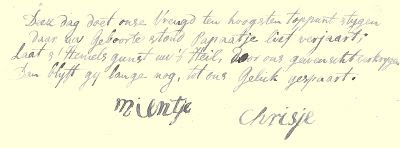 Deze dag doet onse Vreugd ten hoogsten toppunt stygen
daar uw Geboorte stond Papaatje lief verjaart;
Laat s' Hemels gunst uw 's Heil, door ons gewenscht verkrygen
Dan blyft gy lange nog, tot ons Geluk gespaart.
Mientje Chrisje